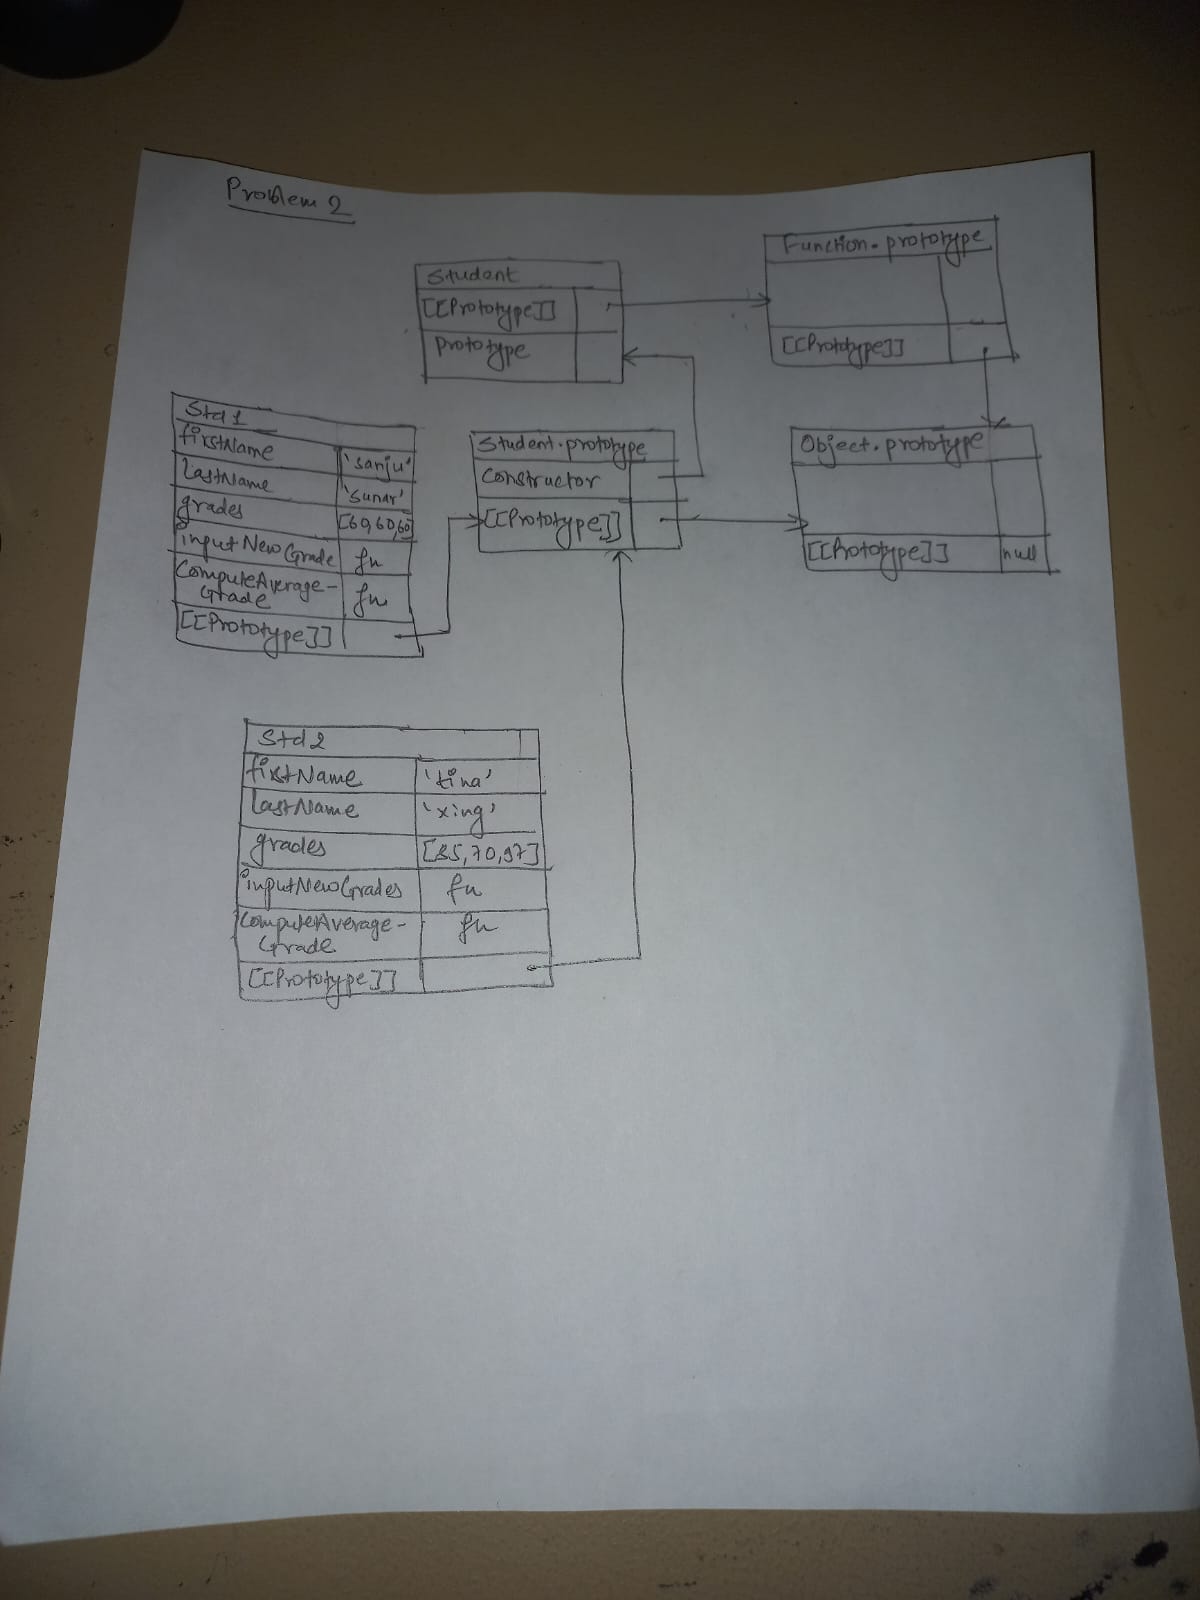 Problem 2
Student
[[Prototype]]
prototype
Function.prototype
[[Prototype]]
Std1
firstName 'sanju'
lastName 'sunar'
grades [60,60,60]
inputNewGrade fn
ComputeAverage-
Grade fn
[[Prototype]]
Student.prototype
Constructor
[[Prototype]]
Object.prototype
[[Prototype]] null
Std2
firstName 'tina'
lastName 'xing'
grades [85,70,97]
inputNewGrades fn
ComputeAverage-
Grade fn
[[Prototype]]